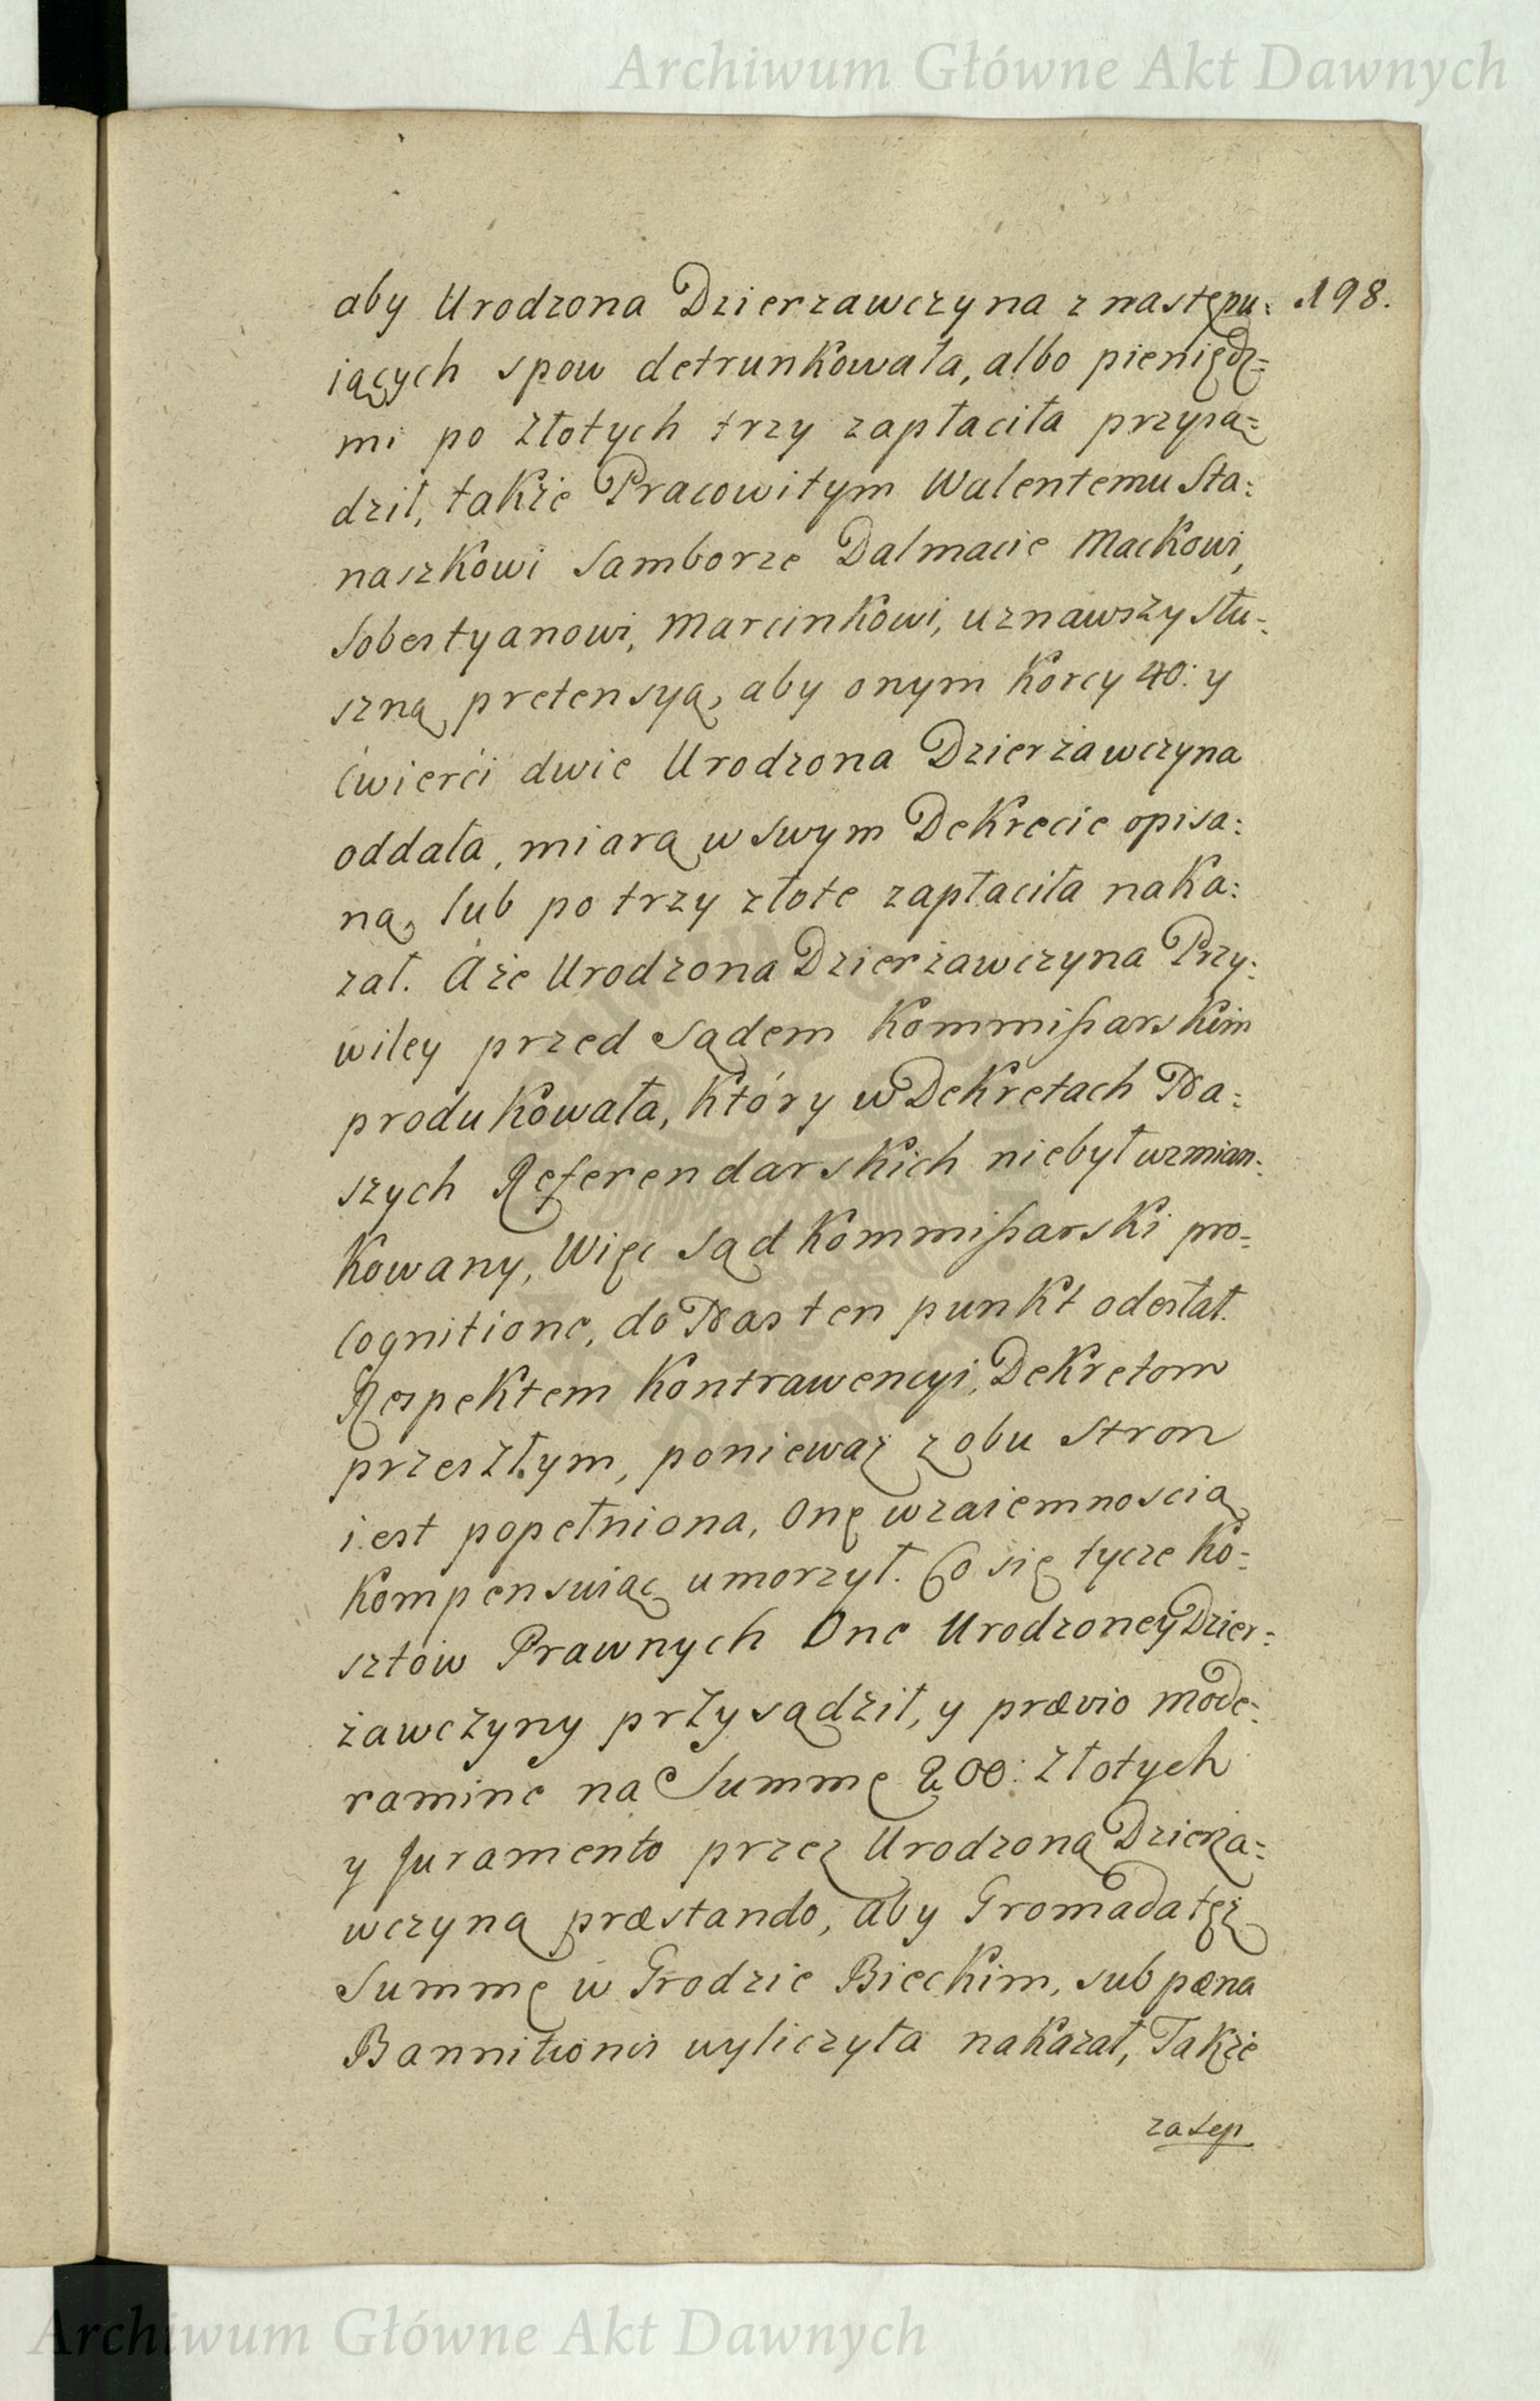 Archiwum Główne Akt Dawnych
aby Urodzona Dzierzawczyna z następu: 198.
iących spow detrunkowała, albo pieniędz=
mi po złotych trzy zapłaciła przysą=
dził, także Pracowitym Walentemu Sta:
naszkowi Samborze Dalmacie Mackowi,
Sobestyanowi, Marcinkowi, uznawszy słu=
szną pretensyą, aby onym Korcy 40: y
ćwierci dwie Urodzona Dzierżawczyna
oddała, miarą w swym Dekrecie opisa:
ną, lub po trzy złote zapłaciła naka:
zał. A że Urodzona Dzierżawczyna Przy:
wiley przed Sądem Kommißarskim
produkowała, który w Dekretach Na:
szych Referendarskich niebył wzmian:
kowany, Więc Sąd Kommißarski pro=
cognitione, do Nas ten punkt odesłał.
Respektem Kontrawencyi, Dekretom
przeszłym, ponieważ z obu Stron
iest popełniona, Onę wzaiemnoscią
kompensuiąc umorzył. Co się tycze Ko=
sztów Prawnych One Urodzoney Dzier=
żawczyny przysądził, y prævio mode=
ramine na Summę 200: Złotych
y Juramento przez Urodzoną Dzierża=
wczyną præstando, aby Gromada tęż
Summę w Grodzie Bieckim, sub pæna
Bannitionis wyliczyła nakazał, Także
za sep
Archiwum Główne Akt Dawnych